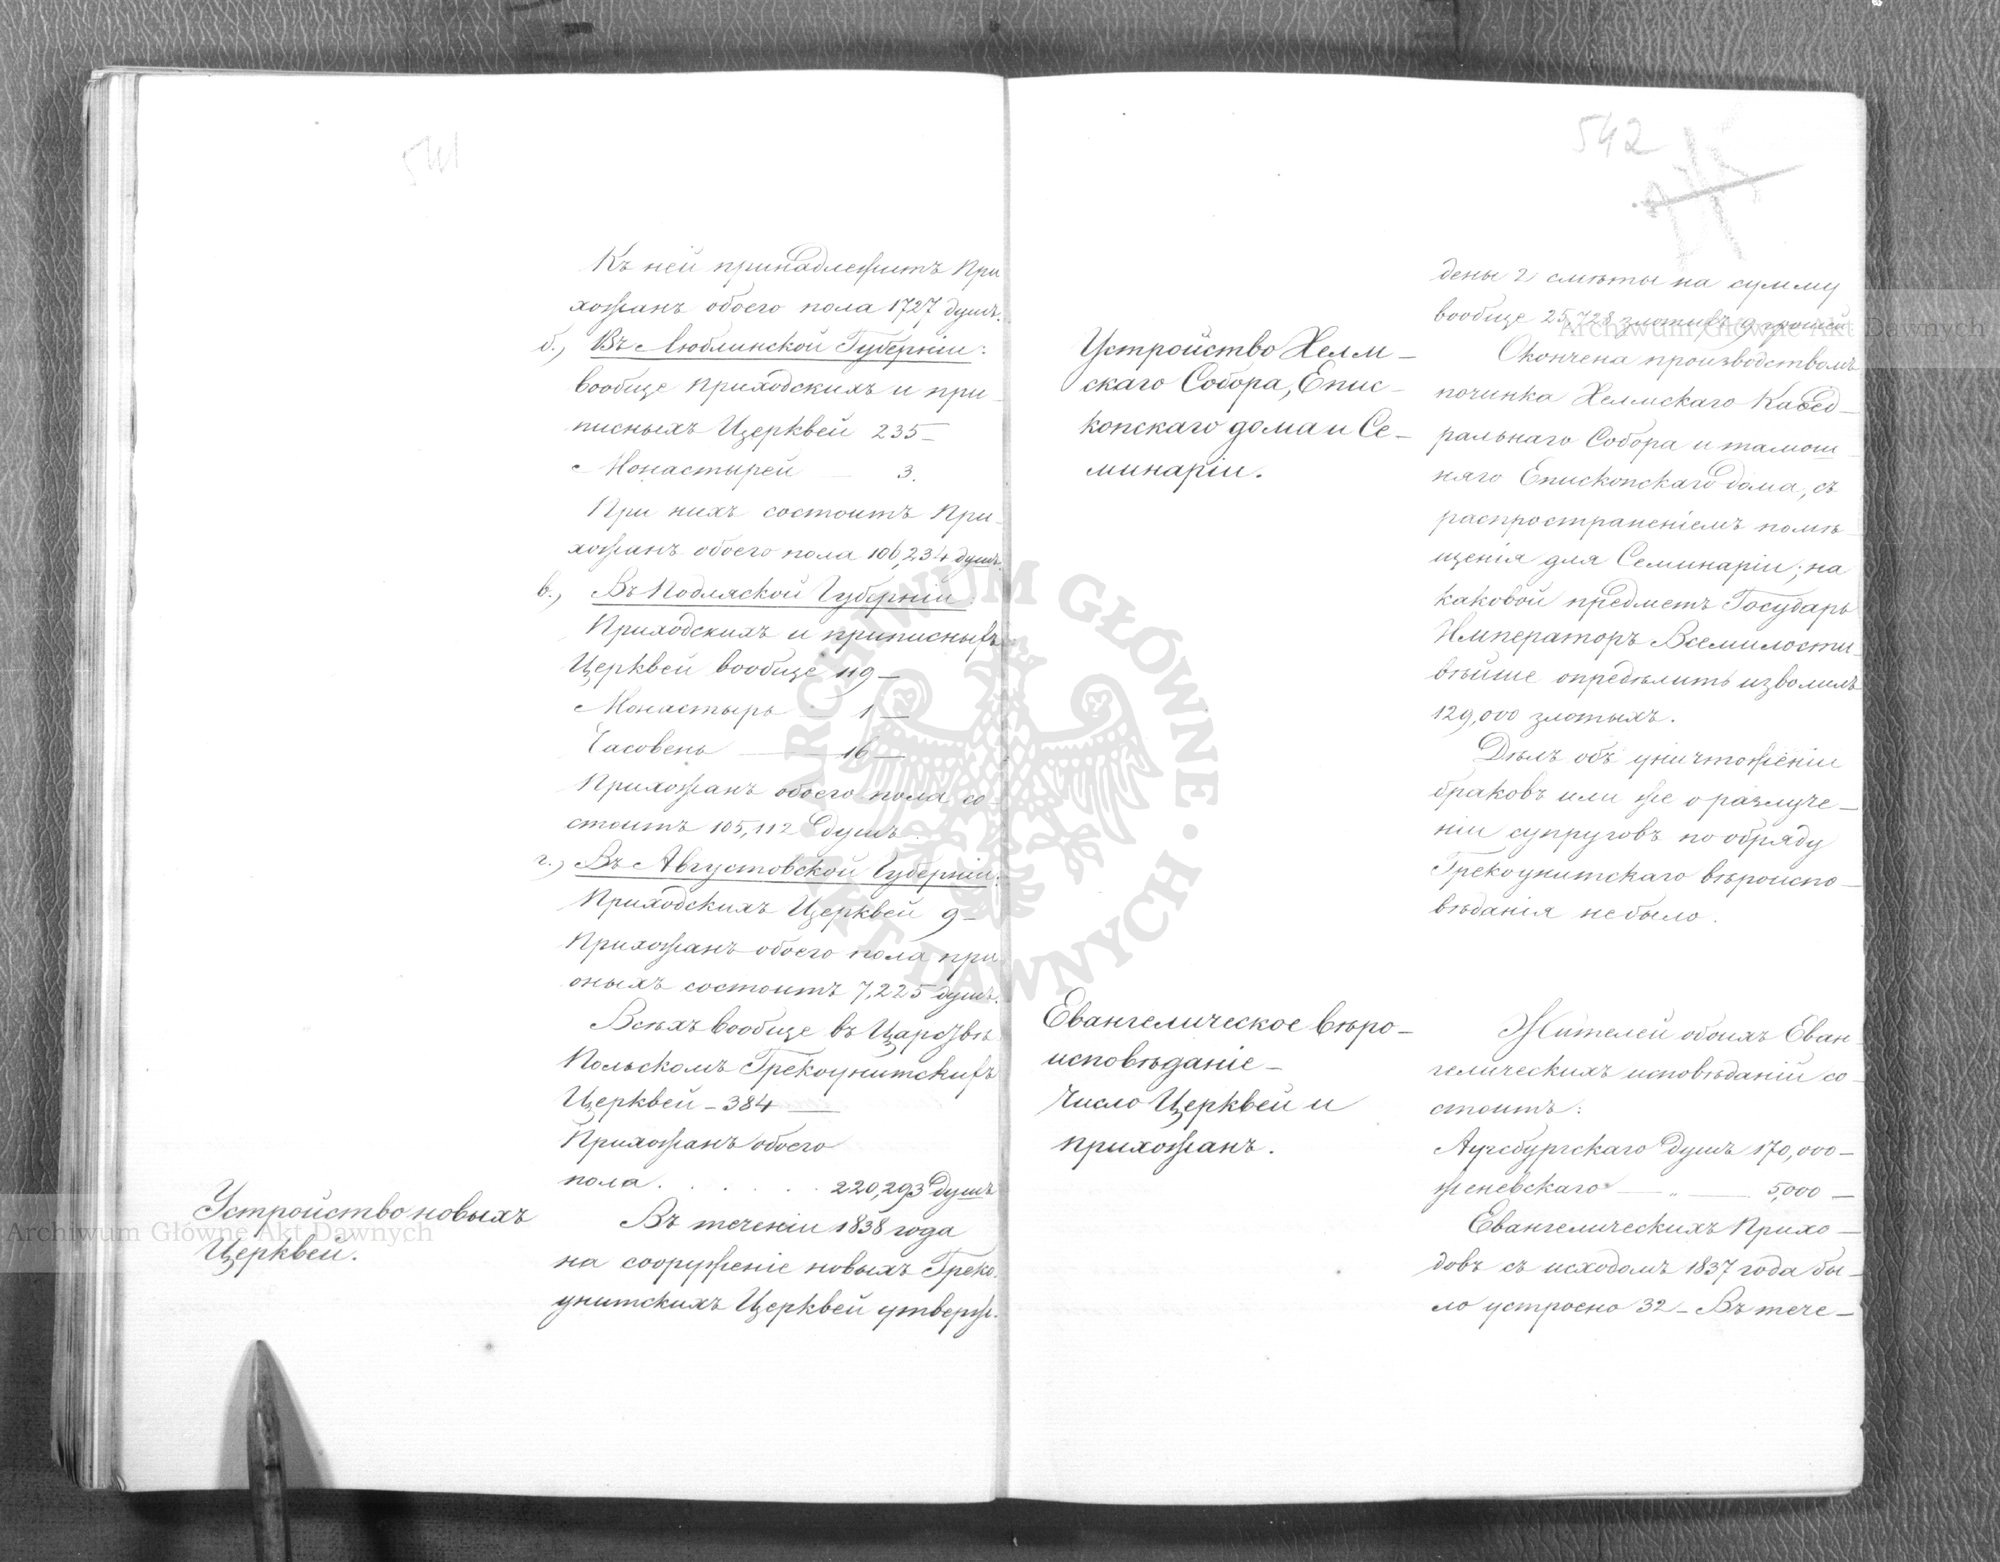 541
Къ ней принадлежитъ При
хожанъ обоего пола 1727 душъ.
б.) Въ Люблинской Губерніи:
вообще Приходскихъ и при-
писныхъ Церквей 235 —
Монастырей — 3.
При нихъ состоитъ При-
хожанъ обоего пола 106,234 душъ.
в.) Въ Подляской Губерніи:
Приходскихъ и приписныхъ
Церквей вообще 119 —
Монастырь — 1 —
Часовень — 16 —
Прихожанъ обоего пола со-
стоитъ 105,112 душъ.
г.) Въ Августовской Губерніи:
Приходскихъ Церквей 9 —
Прихожанъ обоего пола при
оныхъ состоитъ 7,225 душъ.
Всѣхъ вообще въ Царствѣ
Польскомъ Грекоунитскихъ
Церквей — 384 —
Прихожанъ обоего
пола . . . . . . 220,293 душъ
Устройство новыхъ
Церквей.
Въ теченіи 1838 года
на сооруженіе новыхъ Греко-
унитскихъ Церквей утверж-
542
дены 2 смѣты на сумму
вообще 25,728 злотыхъ 19 грошей
Устройство Хелм-
скаго Собора, Епис-
копскаго дома и Се-
минаріи.
Окончена производствомъ
починка Хелмскаго Каѳед-
ральнаго Собора и тамош-
няго Епископскаго дома, съ
распространеніемъ помѣ-
щенія для Семинаріи; на
каковой предметъ Государь
Императоръ Всемилости-
вѣйше опредѣлить изволилъ
129,000 злотыхъ.
Дѣлъ объ уничтоженіи
браковъ или же о разлуче-
ніи супруговъ по обряду
Грекоунитскаго вѣроиспо-
вѣданія не было.
Евангелическое вѣро-
исповѣданіе —
Число Церквей и
прихожанъ.
Жителей обоихъ Еван-
гелическихъ исповѣданій со-
стоитъ:
Аугсбургскаго душъ 170,000 —
Женевскаго — „ — 5,000 —
Евангелическихъ Прихо-
довъ съ исходомъ 1837 года бы-
ло устроено 32 — Въ тече-
Archiwum Główne Akt Dawnych
Archiwum Główne Akt Dawnych
ARCHIWUM GŁÓWNE · AKT DAWNYCH ·